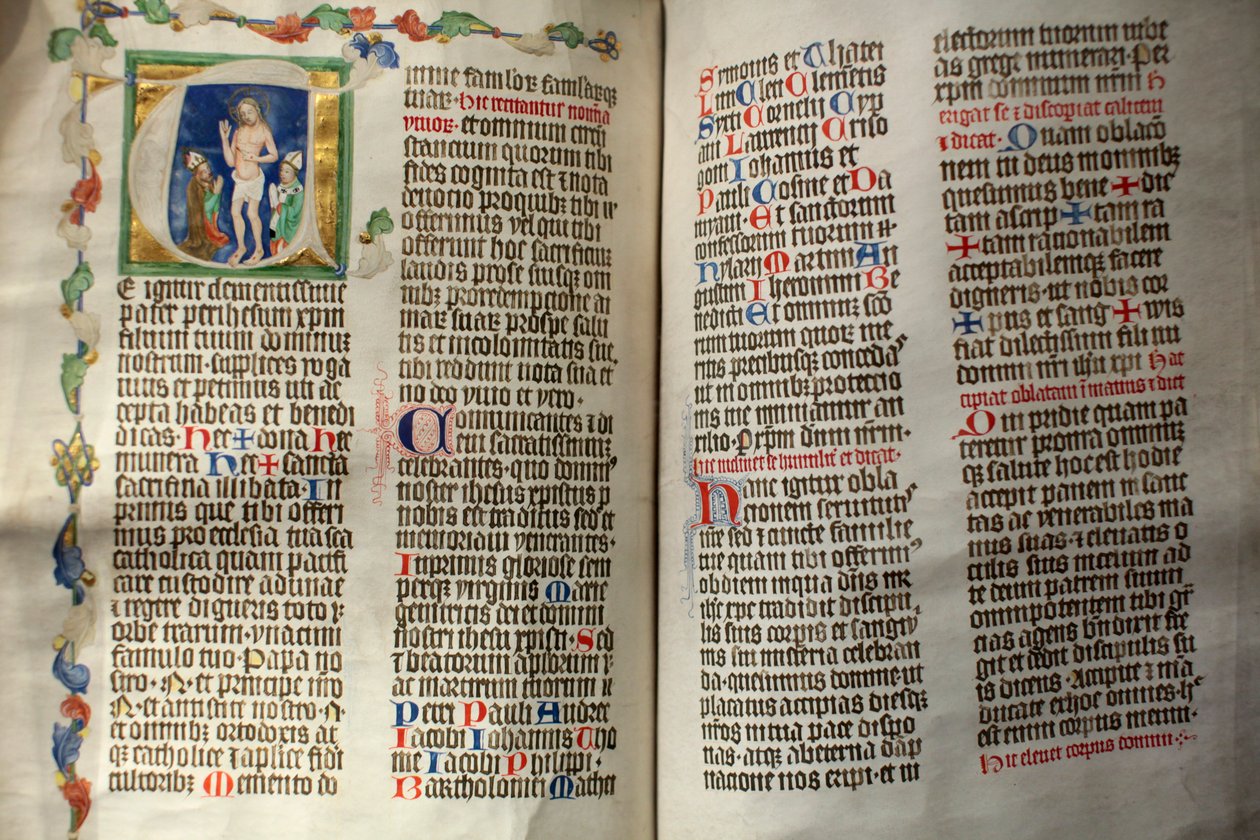 T
E igitur clementissime
pater per ihesum xpm
filium tuum dominum
nostrum supplices roga
mus et petimus uti ac
cepta habeas et benedi
dicas. hec + dona hec
munera hec + sancta
sacrificia illibata. In
primis que tibi offeri
mus pro ecclesia tua sca
catholica quam pacifi
care custodire adunare
z regere digneris toto
orbe trarum. vna cum
famulo tuo. Papa no
stro. N. et principe nro
N. et antistite nostro. N.
et omnibz ortodoxis at
qz catholice z aplice fidei
cultoribz Memento do
mine famlor famlarqz
tuar. hic recitantur nomina
viuor. et omnium circu
stancium quorum tibi
fides cognita est z nota
deuocio pro quibz tibi
offerimus vel qui tibi
offerunt hoc sacrificium
laudis pro se suisqz om
nibz pro redempcione ai
mar suar pro spe salu
tis et incolomitatis sue
tibi reddunt uota sua et
no deo viuo et vero.
Communicantes z di
em sacratissimum
celebrantes. quo dominus
noster ihesus xpistus p
nobis est traditus sed et
memoriam venerantes.
Inprimis gloriose sem
perqz virginis Marie
genitricis dei et domini
nostri ihesu xpisti. Sed
z beatorum aplorum
ac martirum tuorum
Petri Pauli Andree
Iacobi Iohannis Tho
me Iacobi Philippi.
Bartholomei Mathei
Symonis et Thatei
Lini Cleti Clementis
Syxti Cornelii Cyp
ani Laurencii Criso
goni Iohannis et
Pauli Cosme et Da
myani. Et sanctorum
confessorum tuorum
hylarii Martini Au
gustini Iheronimi Be
nedicti Et omnium sco
rum tuorum quor me
ritis precibusqz concedas
ut in omnibz protectio
nis tue muniamur au
xilio. Per xpm dnm nrm.
hic inclinet se humiliter et dicat.
hanc igitur obla
cionem seruitutis
nre sed z cuncte familie
tue quam tibi offerim
ob diem in qua dns nr
ihc xpc tradidit discipu
lis suis corpis et sangui
nis sui misteria celebran
da. quesumus domine ut
placatus accipias diesqz
nros in tua pace dispo
nas. atqz ab eterna dap
nacione nos eripi. et in
electorum tuorum iube
as grege numerari. Per
xpm dominum nrm h
erigat se z discopiat calicem
z dicat. Quam oblaco
nem tu deus in omnibz
quesumus bene + dic
tam ascrip + tam ra
+ tam racionabilem
acceptabilemqz facere
digneris. ut nobis cor
+ pus et sang + wis
fiat dilectissimi filii tui
domini nri ihu xpi hic
accipiat oblatam i manus z dicat
Qui pridie quam pa
teretur pro nra omniumqz
qz salute hoc est hodie
accepit panem in sanc
tas ac venerabiles ma
nus suas. z eleuatis o
culis suis in celum ad
te deum patrem suum
omnipotentem tibi gra
cias agens bndixit fre
git et dedit discipulis su
is dicens. Accipite z ma
ducate ex hoc omnes. h
est enim corpus meum.
Hic eleuet corpus domini.